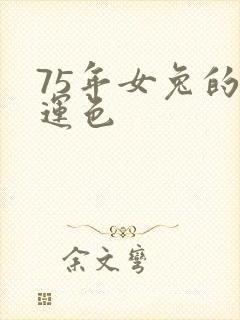 75年女兔的
運色
余文彎